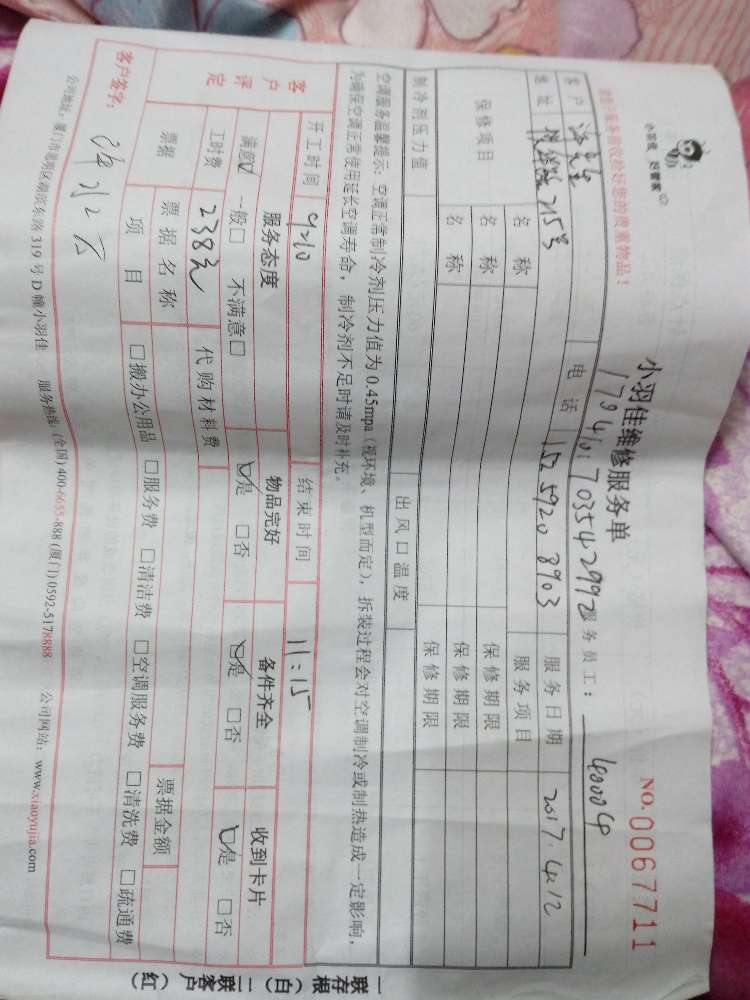 小羽佳 好管家
小羽佳维修服务单
NO.0067711
服务员工: 40004
客户 电话 152 5920 8903 服务日期 2017.4.12
地址 215号 服务项目
保修项目 名称 保修期限
名称 保修期限
名称 保修期限
制冷剂压力值 出风口温度
空调服务温馨提示：空调正常制冷剂压力值为0.45mpa（视环境、机型而定），拆装过程会对空调制冷或制热造成一定影响，
为确保空调正常使用延长空调寿命，制冷剂不足时请及时补充。
开工时间 9:10 结束时间 11:15
客户评定 服务态度 物品完好 备件齐全 收到卡片
满意☑ 一般□ 不满意□ ☑是 □否 ☑是 □否 ☑是 □否
工时费 238元 代购材料费
票据 票据名称 票据金额
项目 □搬办公用品 □服务费 □清洁费 □空调服务费 □清洗费 □疏通费
客户签字:
公司地址：厦门市思明区湖滨东路319号D幢小羽佳 服务热线：(全国)400-6655-888 (厦门)0592-5178888 公司网站：www.xiaoyujia.com
一联存根（白）二联客户（红）